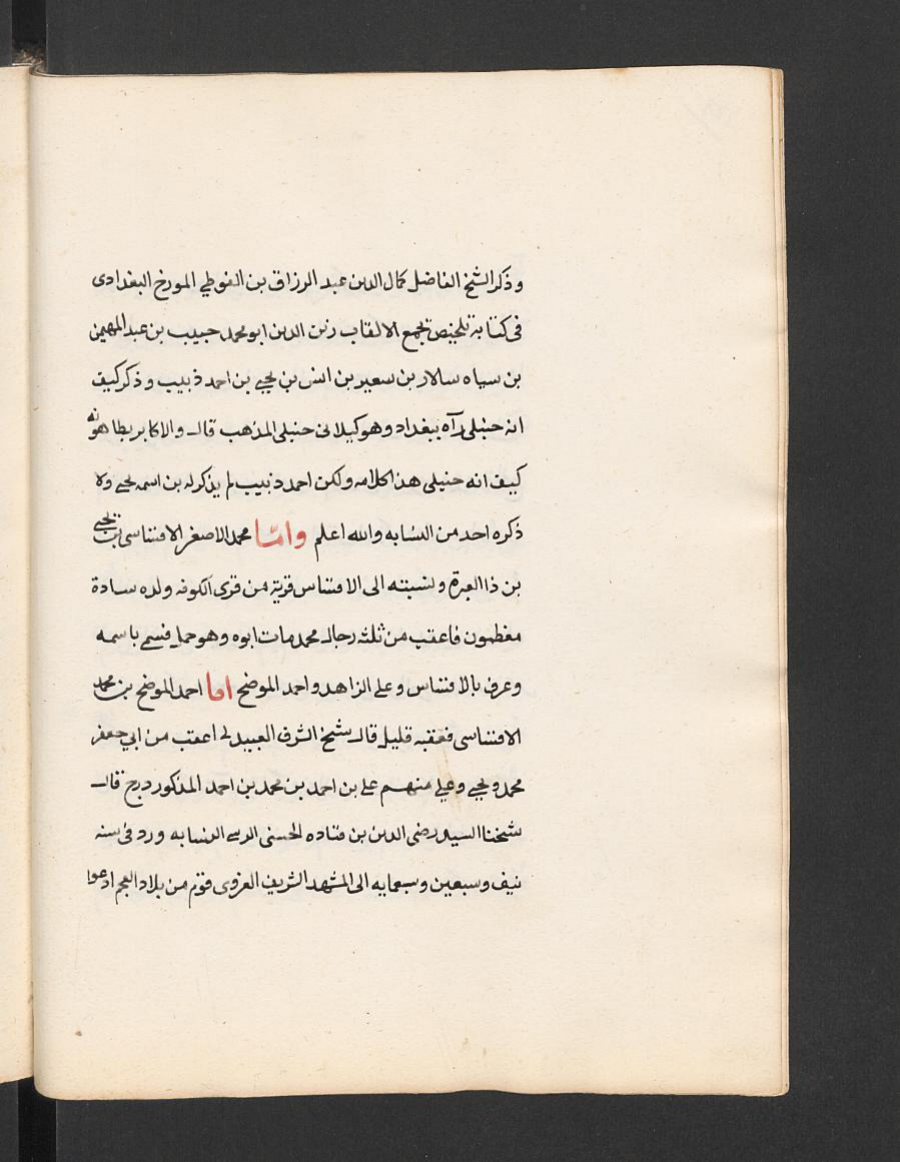 وذكر الشيخ الفاضل كمال الدين عبد الرزاق بن الفوطي المورخ البغدادى
فى كتابه تلخيص مجمع الالقاب زين الدين ابو محمد حبيب بن عبد المهيمن
بن سياه سالار بن سعير بن انس بن يحيى بن احمد ذبيب وذكر كيف
انه حنبلى رآه ببغداد وهو كيلانى حنبلى المذهب قال والاكابر
كيف انه حنبلى هذا كلامه ولكن احمد ذبيب لم يذكر له بن اسمه يحيى ولا
ذكره احد من النسابه والله اعلم واما محمد الاصغر الاقتاسى بن يحيى
بن ذا العبرة ونسبته الى الاقتاس قرية من قرى الكوفه ولده سادة
معظمون فاعقب من ثلثه رجال محمد مات ابوه وهو حمل فسمى باسمه
وعرف بالاقتاس وعلى الزاهد واحمد الموضح اما احمد الموضح بن محمد
الاقتاسى فعقبه قليل قال شيخ الشرف العبيدلى اعقب من ابى جعفر
محمد ويحيى وعلى منهم على بن احمد بن محمد بن احمد المذكور درج قال
شيخنا السيد رضى الدين بن قتاده الحسنى الرسى النسابه ورد فى سنه
نيف وسبعين وسبعمايه الى المشهد الشريف الغروى قوم من بلاد العجم ادعوا